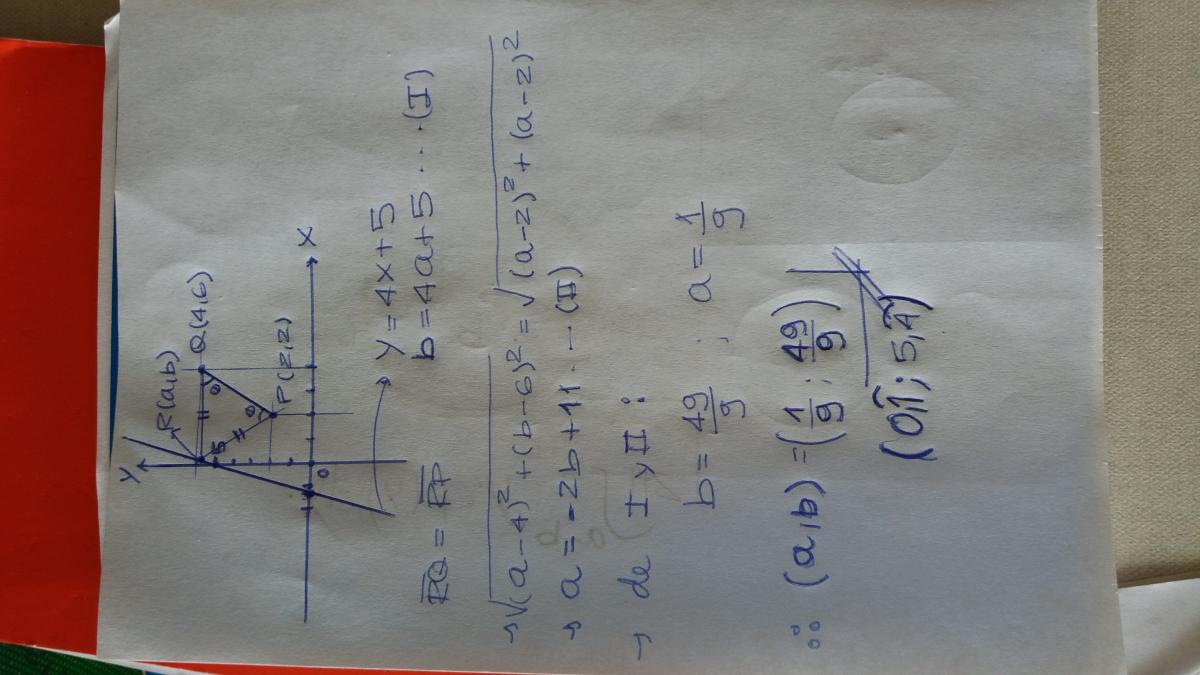 Y
R(a,b)
Q(4,6)
θ
θ
5
P(2,2)
X
0
y=4x+5
RQ = RP
b=4a+5...(I)
→ √(a-4)²+(b-6)² = √(a-2)²+(a-2)²
→ a=-2b+11...(II)
→ de I y II:
b= 49/9 ; a= 1/9
∴ (a,b) =(1/9; 49/9)
(0,1̂; 5,4̂)